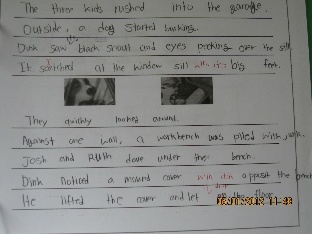 The three kids rushed into the garage.
Outside, a dog started barking.
Dink saw black snout and eyes peeking over the sill
It scratched at the window sill with it's big feet.
They quickly looked around.
Against one wall, a workbench was piled with junk.
Josh and Ruth dove under the bench.
Dink noticed a mound cover opposit the bench
He lifted the cover and let the floor.